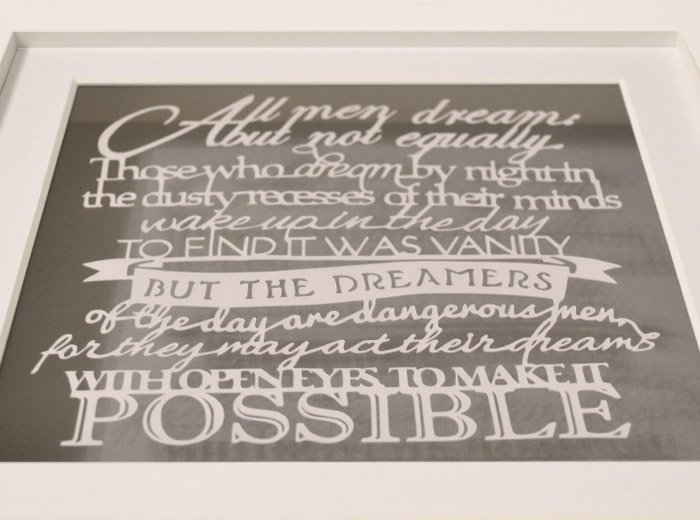 All men dream:
but not equally.
Those who dream by night in
the dusty recesses of their minds
wake up in the day
TO FIND IT WAS VANITY
BUT THE DREAMERS
of the day are dangerous men,
for they may act their dreams
WITH OPEN EYES, TO MAKE IT
POSSIBLE